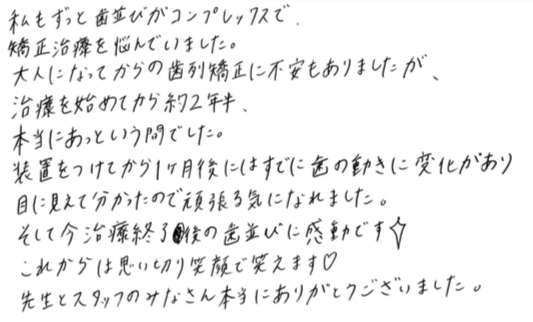 私もずっと歯並びがコンプレックスで、
矯正治療を悩んでいました。
大人になってからの歯列矯正に不安もありましたが、
治療を始めてから約2年半、
本当にあっという間でした。
装置をつけてから1ヶ月後にはすでに歯の動きに変化があり
目に見えて分かったので頑張る気になれました。
そして今治療終了後の歯並びに感動です☆
これからは思い切り笑顔で笑えます♡
先生とスタッフのみなさん本当にありがとうございました。